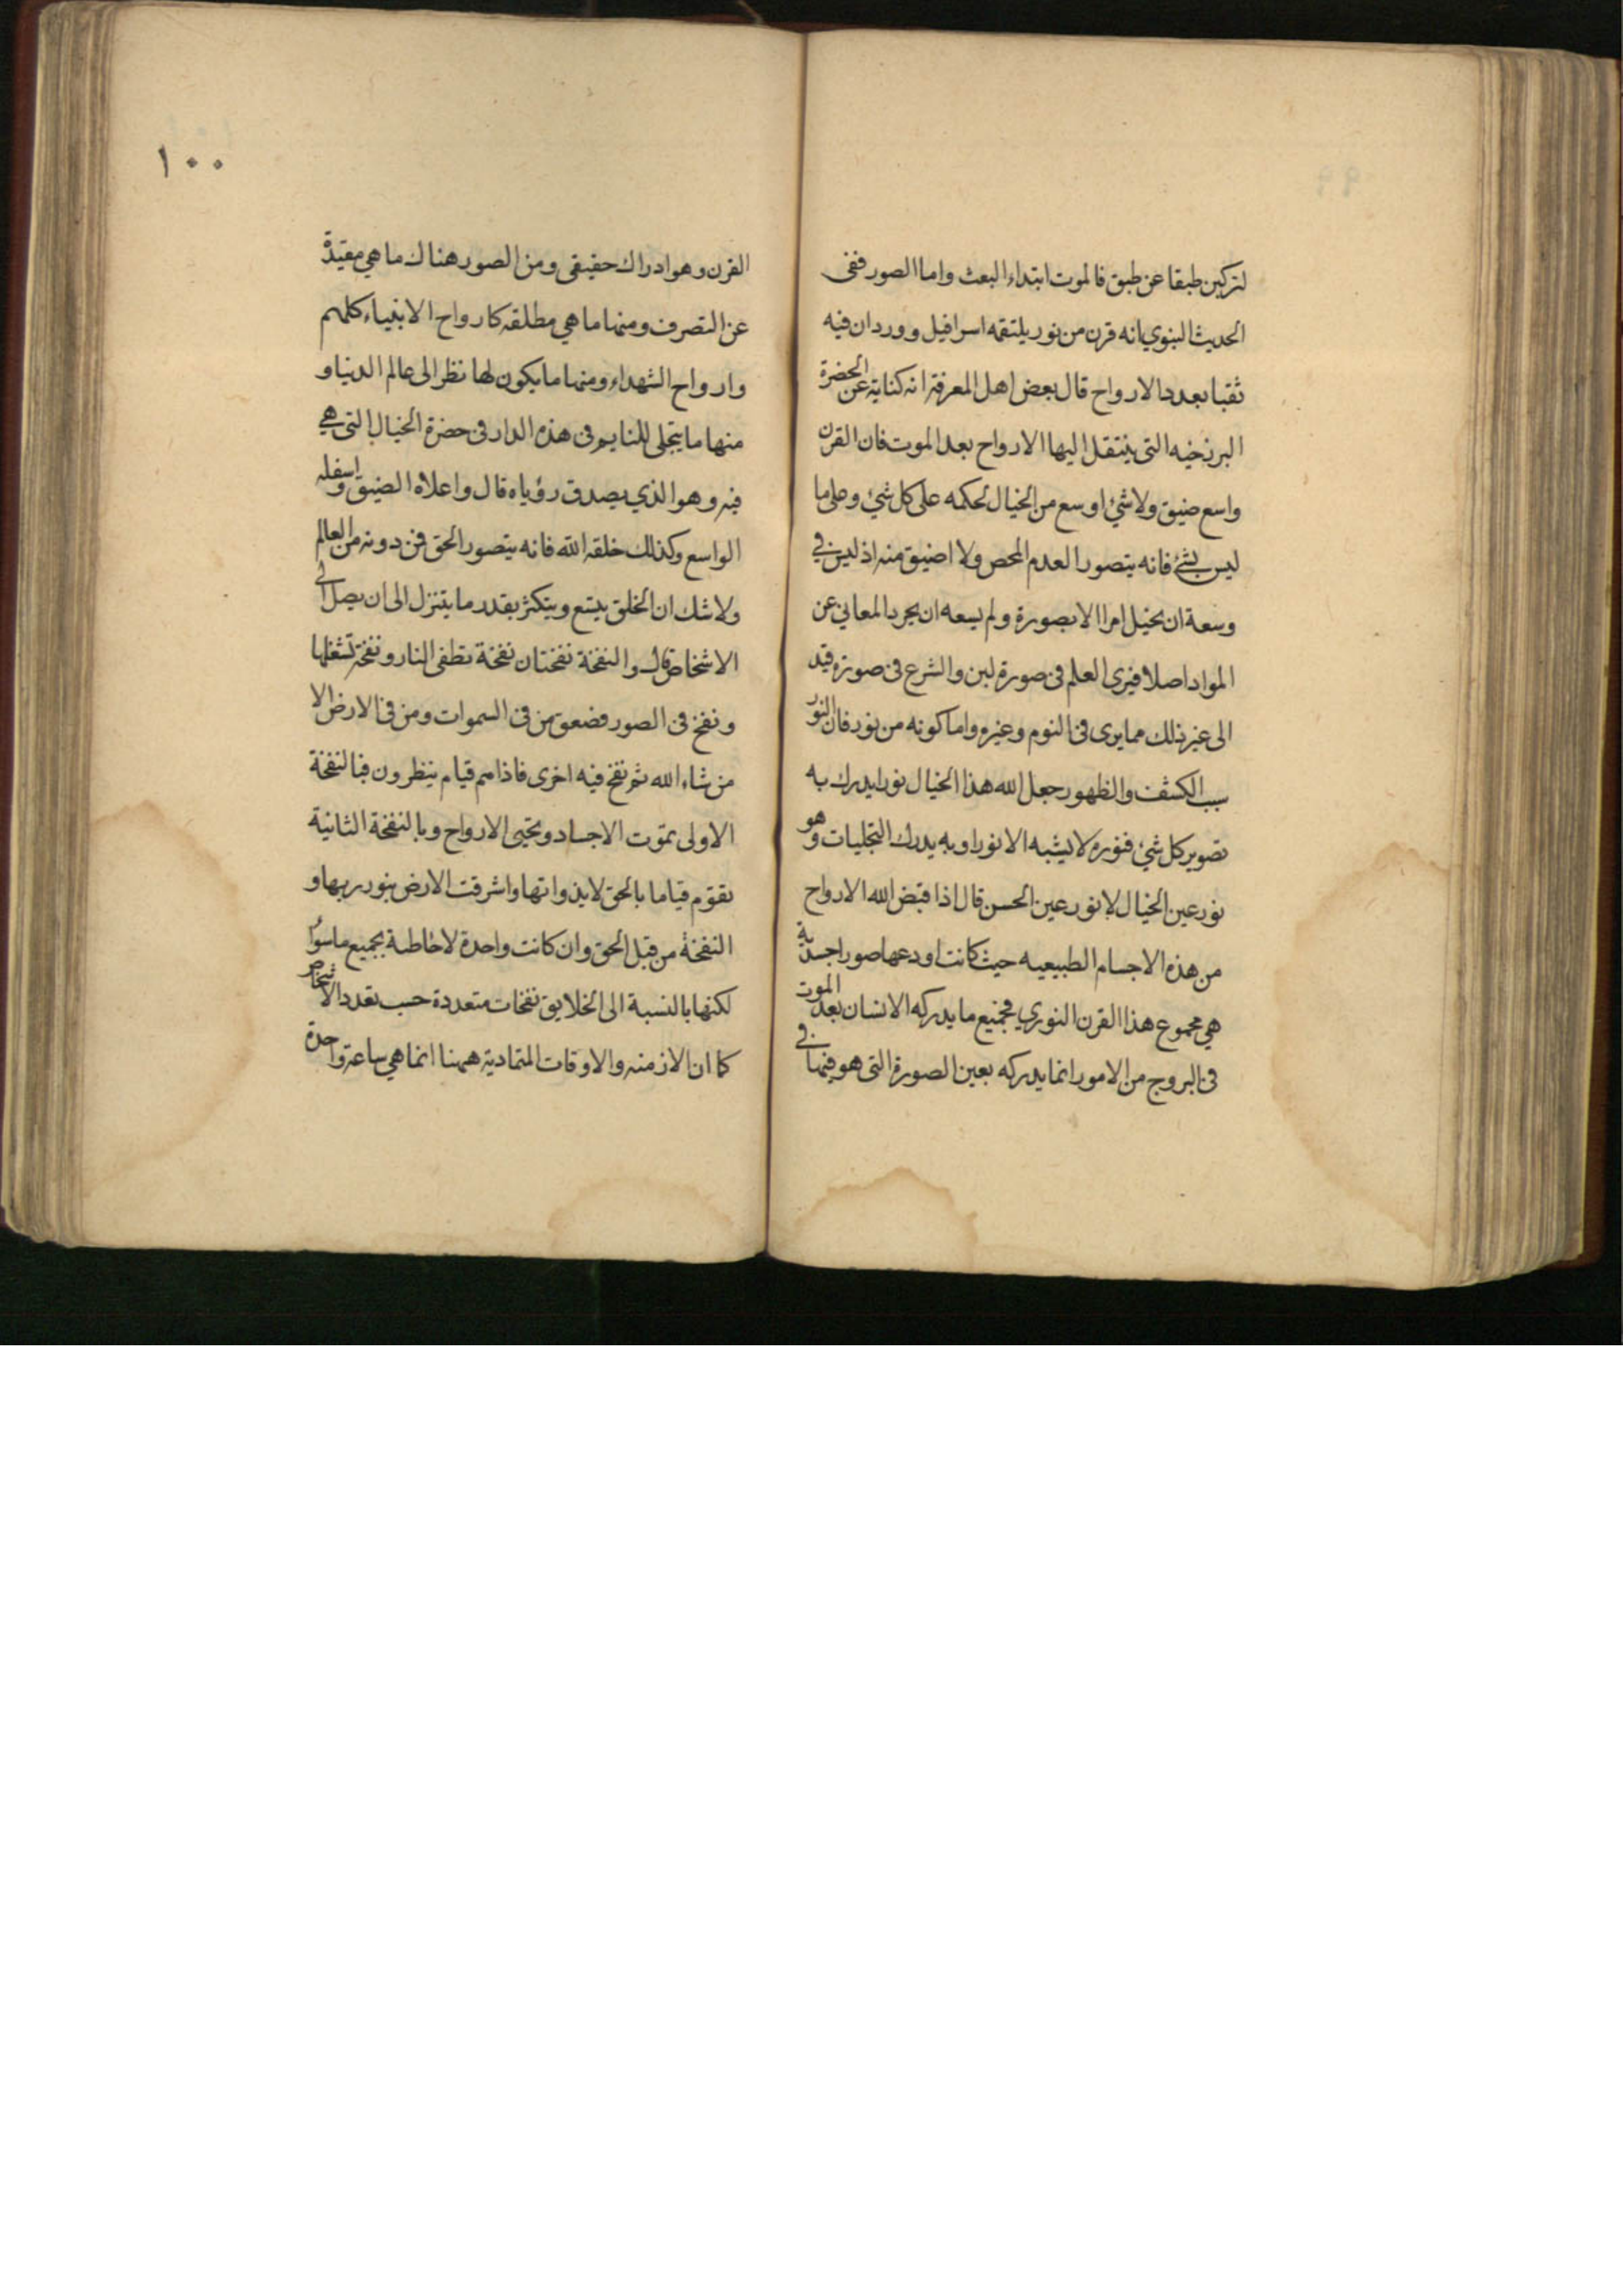 لتركبن طبقا عن طبق فالموت ابتداء البعث واما الصور ففى
الحديث النبوي انه قرن من نور يلتقمه اسرافيل وورد ان فيه
ثقبا بعدد الارواح قال بعض اهل المعرفة انه كناية عن الحضرة
البرزخيه التى ينتقل اليها الارواح بعد الموت فان القرن
واسع ضيق ولا شئ اوسع من الخيال لحكمه على كل شئ وعلى ما
ليس بشئ فانه يتصور العدم المحض ولا اضيق منه اذ ليس في
وسعة ان يخيل امرا الا بصورة ولم يسعه ان يجرد المعاني عن
المواد اصلا فيرى العلم فى صورة لبن والشرع فى صورة قيد
الى غير ذلك مما يرى فى النوم وغيره واما كونه من نور فان النور
سبب الكشف والظهور جعل الله هذا الخيال نورا يدرك به
تصوير كل شئ فنوره لا يشبه الانوار وبه يدرك التجليات وهو
نور عين الخيال لا نور عين الحس قال اذا قبض الله الارواح
من هذه الاجسام الطبيعيه حيث كانت اودعها صورا جسدية
هي مجموع هذا القرن النوري فجميع ما يدركه الانسان بعد الموت
فى البروج من الامور انما يدركه بعين الصورة التى هو فيها في
١٠٠
القرن وهو ادراك حقيقى ومن الصور هناك ما هي مقيدة
عن التصرف ومنها ما هي مطلقه كارواح الانبياء كلهم
وارواح الشهداء ومنها ما يكون لها نظر الى عالم الدنيا و
منها ما يتجلى للنايم فى هذه الدار فى حضرة الخيال التى هي
فيه وهو الذي يصدق رؤياه قال واعلاه الضيق واسفله
الواسع وكذلك خلقه الله فانه يتصور الحق فمن دونه من العالم
ولا شك ان الخلق يتسع ويتكثر بقدر ما يتنزل الى ان يصل الى
الاشخاص قال والنفخة نفختان نفخة تطفى النار ونفخة تشعلها
ونفخ فى الصور فصعق من فى السموات ومن فى الارض الا
من شاء الله ثم نفخ فيه اخرى فاذا هم قيام ينظرون فبالنفخة
الاولى تموت الاجساد وتحيى الارواح وبالنفخة الثانية
تقوم قياما بالحق لا بذواتها واشرقت الارض بنور ربها و
النفخة من قبل الحق وان كانت واحدة لاحاطة بجميع ما سواه
لكنها بالنسبة الى الخلايق نفخات متعددة حسب تعدد الاشخاص
كما ان الازمنه والاوقات المتمادية ههنا انما هي ساعة واحدة